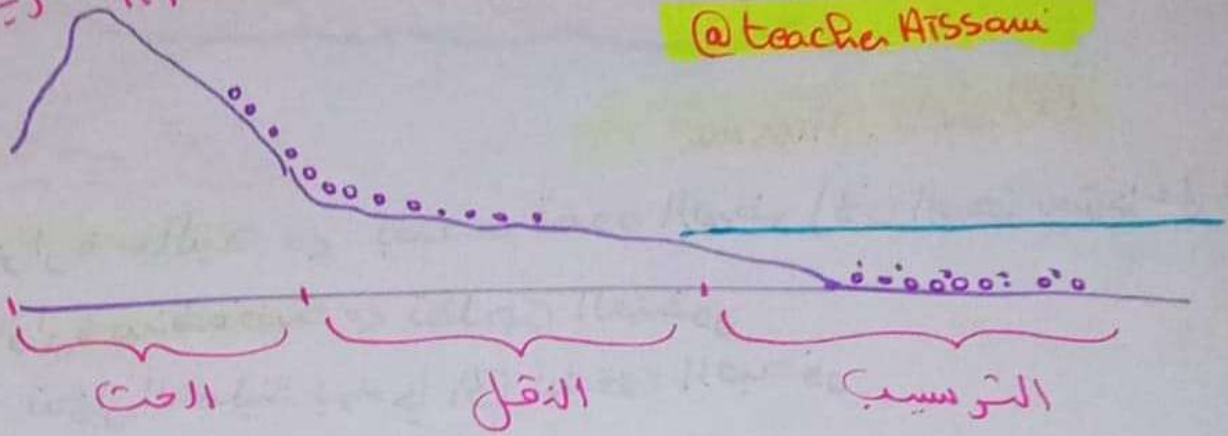 @teacher Aissaui
الحت
النقل
الترسيب